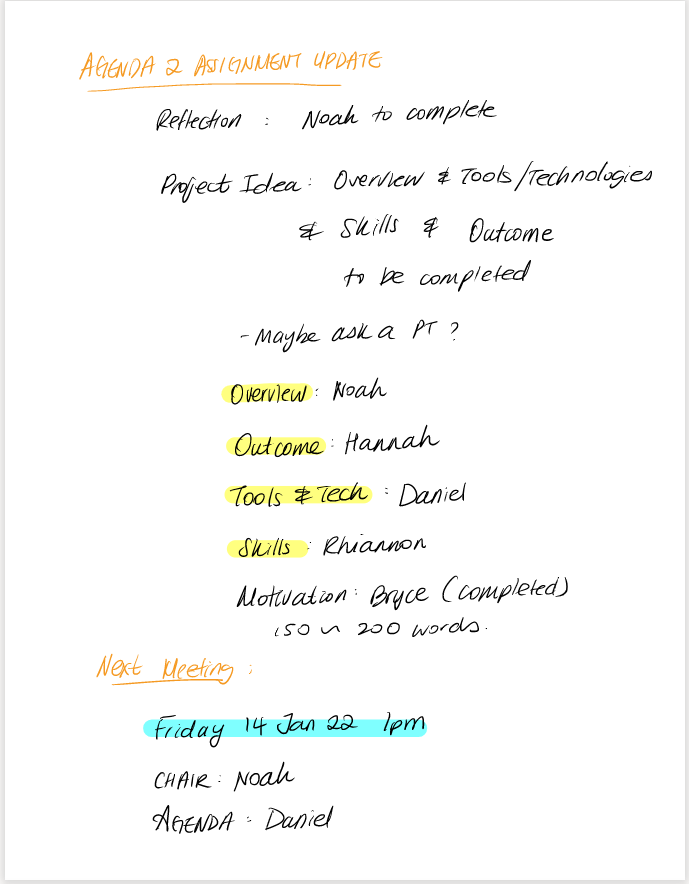 AGENDA 2 ASSIGNMENT UPDATE
Reflection : Noah to complete
Project Idea: Overview & Tools/Technologies
& Skills & Outcome
to be completed
- Maybe ask a PT ?
Overview: Noah
Outcome: Hannah
Tools & Tech : Daniel
Skills : Rhiannon
Motivation: Bryce (completed)
150 ~ 200 words.
Next Meeting :
Friday 14 Jan 22 1pm
CHAIR: Noah
AGENDA : Daniel